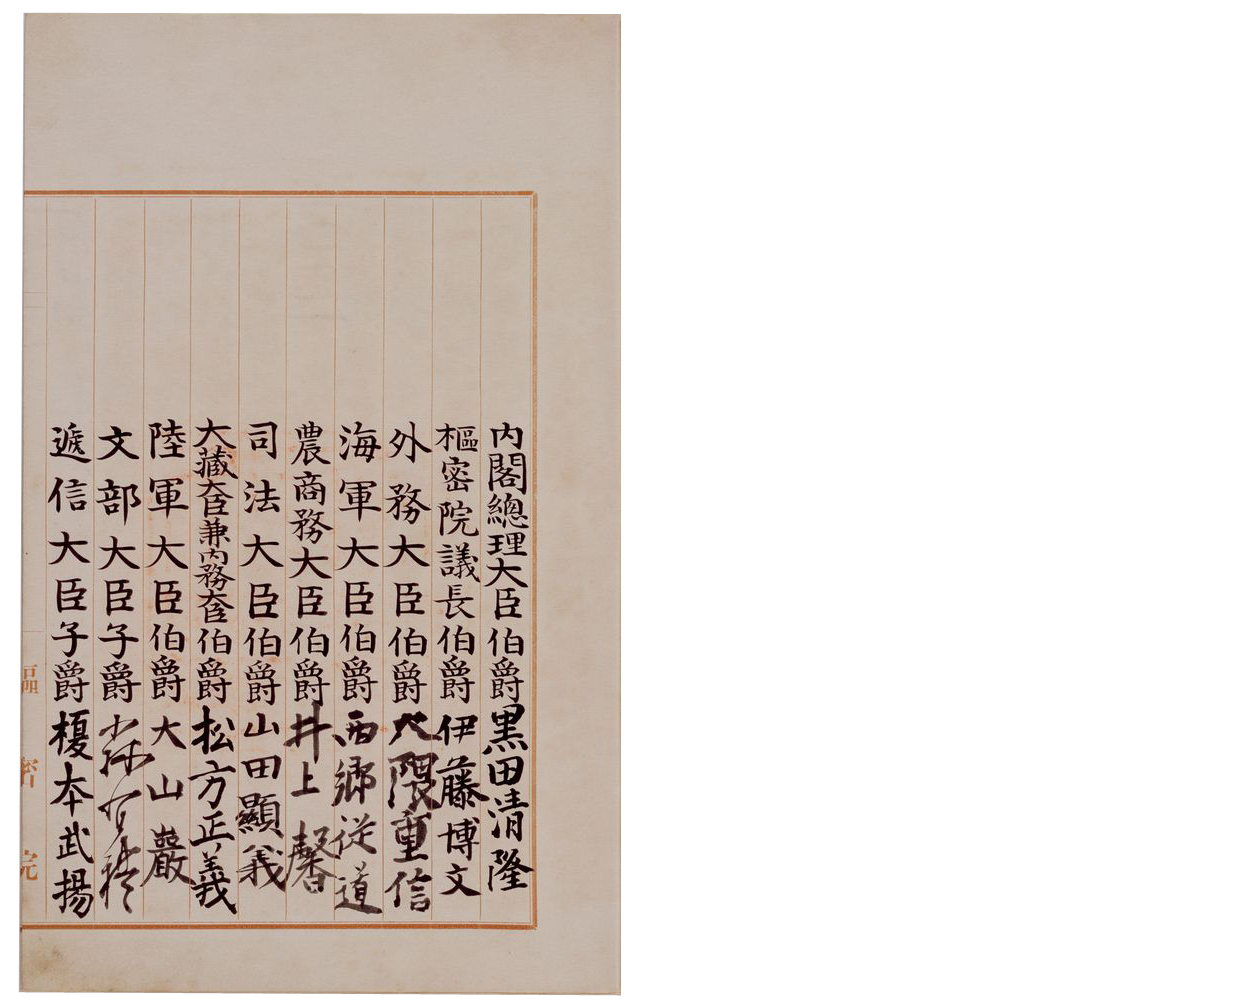 內閣總理大臣伯爵黒田清隆
樞密院議長伯爵伊藤博文
外務大臣伯爵大隈重信
海軍大臣伯爵西郷従道
農商務大臣伯爵井上馨
司法大臣伯爵山田顯義
大藏大臣兼內務大臣伯爵松方正義
陸軍大臣伯爵大山巖
文部大臣子爵
遞信大臣子爵榎本武揚
樞密院